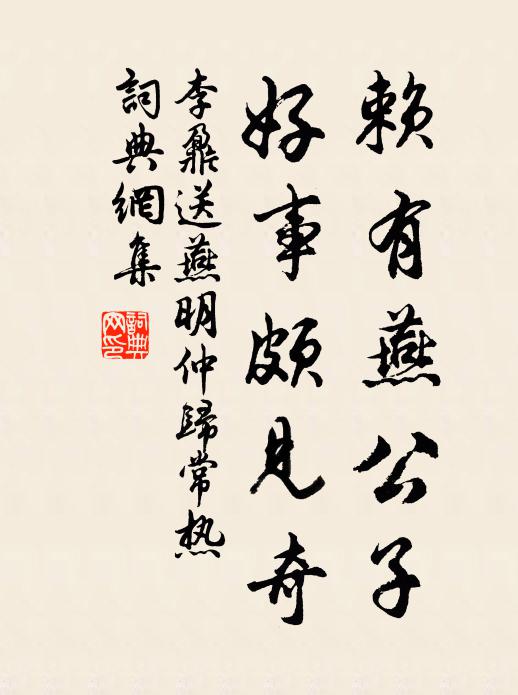 賴有燕公子
好事頗見奇
李鼐送燕明仲歸常熱
詞典網集
詞典网印